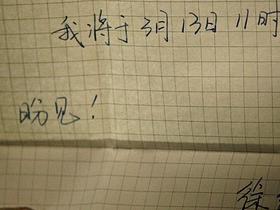 我将于3月13日11时
盼见!
徐